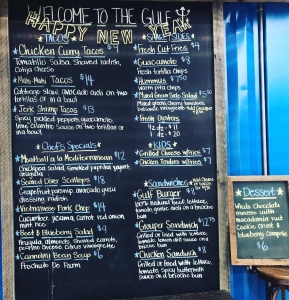 WELCOME TO THE GULF
HAPPY NEW YEAR
TACOS
*Chicken Curry Tacos $
Tomatillo Salsa, Shredded Radish,
Cotija Cheese
*Mahi-Mahi Tacos $14
Cabbage Slaw, avocado aioli on two
tortillas or in a bowl
*Jerk Shrimp Tacos $13
Spicy pickled peppers, guacamole,
lime cilantro sauce on two tortillas or in
a bowl
Chef's Specials
*Meatball a la Mediterranean $12
Chickpea salad, Smoked paprika yogurt
*Seared Diver Scallops $18
Grapefruit, parsnip, avocado
dressing, radish
*Vietnamese Pork Chop $14
Cucumber, jicama, carrot, red onion, mint
rice
*Beet & Blueberry Salad $9
Arugula, almonds, shaved carrots,
Citrus vinaigrette
*Cannellini Bean Soup $6
Prosciutto De Parm
SIDES
*Fresh Cut Fries $4
*Guacamole $8
Fresh tortilla chips
*Hummus $7
warm pita chips
*Mixed Green Side Salad $5
Mixed greens, Cherry tomatoes,
*Fresh Oysters
½ dz - $11
1 dz - $20
KIDS
*Grilled Cheese w/fries $7
*Chicken Tenders w/fries $7
Sandwiches
*Gulf Burger
100% natural beef, lettuce,
tomato, garlic aioli on a brioche
bun
*Grouper Sandwich $12.75
Grilled or fried with lettuce,
tomato, lemon dill sauce on a
brioche bun
*Chicken Sandwich $8
Grilled or fried with lettuce,
tomato, Spicy buttermilk
sauce on a brioche bun
Dessert
Nude Chocolate
mousse with
macadamia nut
Cookie Crust &
blueberry compote
$6